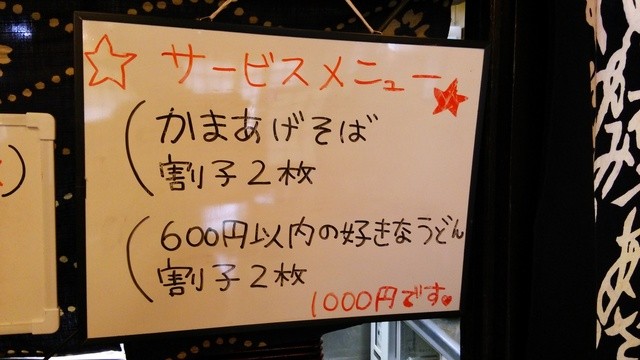 ☆ サービスメニュー ★
かまあげそば
割子2枚
600円以内の好きなうどん
割子2枚
1000円です♥